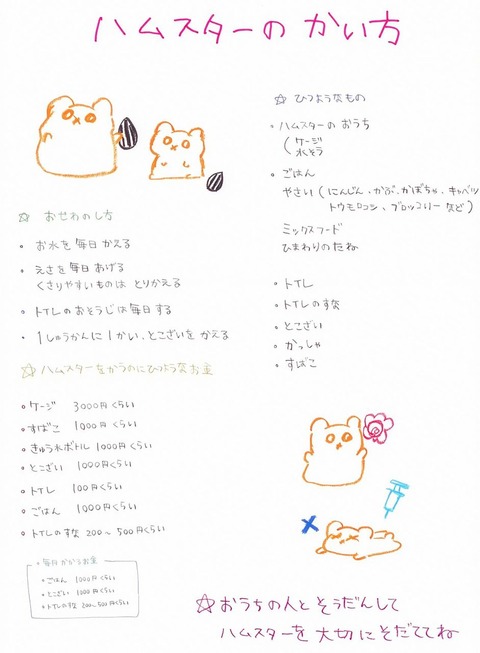 ハムスターの かい方
☆ ひつようなもの
・ハムスターの おうち
( ケージ
水そう
・ごはん
やさい (にんじん、かぶ、かぼちゃ、キャベツ
トウモロコシ、ブロッコリー など)
ミックスフード
ひまわりのたね
・トイレ
・トイレのすな
・とこざい
・かっしゃ
・すばこ
☆ おせわのし方
・お水を毎日 かえる
・えさを毎日 あげる
くさりやすいものは とりかえる
・トイレのおそうじは毎日 する
・1しゅうかんに 1かい、とこざいを かえる
☆ハムスターをかうのにひつようなお金
・ケージ 3000円くらい
・すばこ 1000円くらい
・きゅう水ボトル 1000円くらい
・とこざい 1000円くらい
・トイレ 100円くらい
・ごはん 1000円くらい
・トイレのすな 200〜500円くらい
・毎日かかるお金
・ごはん 1000円くらい
・とこざい 1000円くらい
・トイレのすな 200〜500円くらい
☆おうちの人と そうだんして
ハムスターを 大切に そだててね